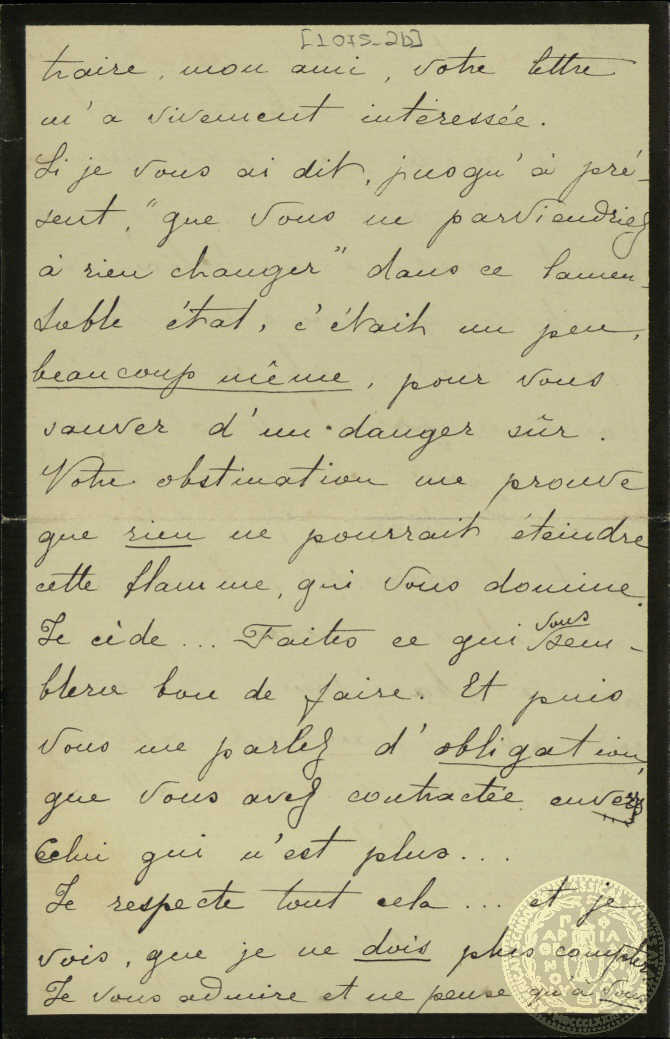 [1075-2b]
traire, mon ami, votre lettre
m'a vivement intéressée.
Si je vous ai dit, jusqu'à pré-
sent, "que vous ne parviendriez
à rien changer" dans ce lamen-
table état, c'était un peu,
beaucoup même, pour vous
sauver d'un danger sûr.
Votre obstination me prouve
que rien ne pourrait éteindre
cette flamme, qui vous domine.
Je cède... Faites ce qui vous sem-
blera bon de faire. Et puis
vous me parlez d'obligation,
que vous avez contractée envers
Celui qui n'est plus...
Je respecte tout cela... et je
vois, que je ne dois plus compter
Je vous admire et ne pense qu'à vous